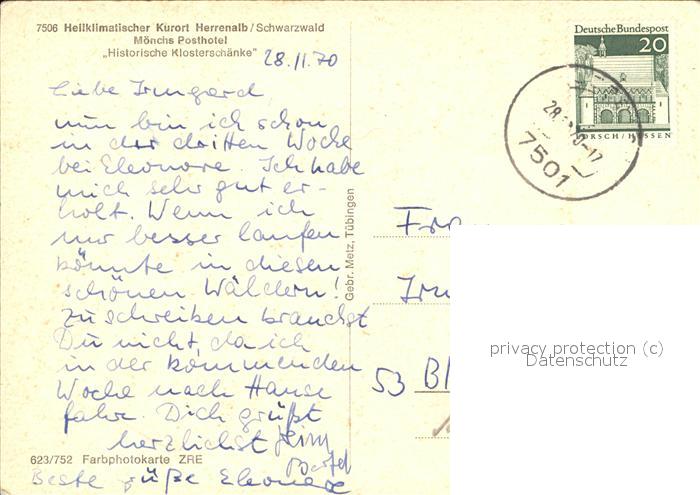 7506 Heilklimatischer Kurort Herrenalb / Schwarzwald
Mönchs Posthotel
„Historische Klosterschänke"
28.11.70
Liebe Irmgard,
nun bin ich schon
in der dritten Woche
bei Eleonore. Ich habe
mich sehr gut er-
holt. Wenn ich
nur besser laufen
könnte in diesen
schönen Wäldern!
Zu schreiben brauchst
Du nicht, da ich
in der kommenden
Woche nach Hause
fahre. Dich grüßt
herzlichst
Beste Grüße Eleonore
623/752 Farbphotokarte ZRE
Gebr. Metz, Tübingen
Deutsche Bundespost
20
LORSCH / HESSEN
28.
-17
7501
53 Bl
privacy protection (c)
Datenschutz